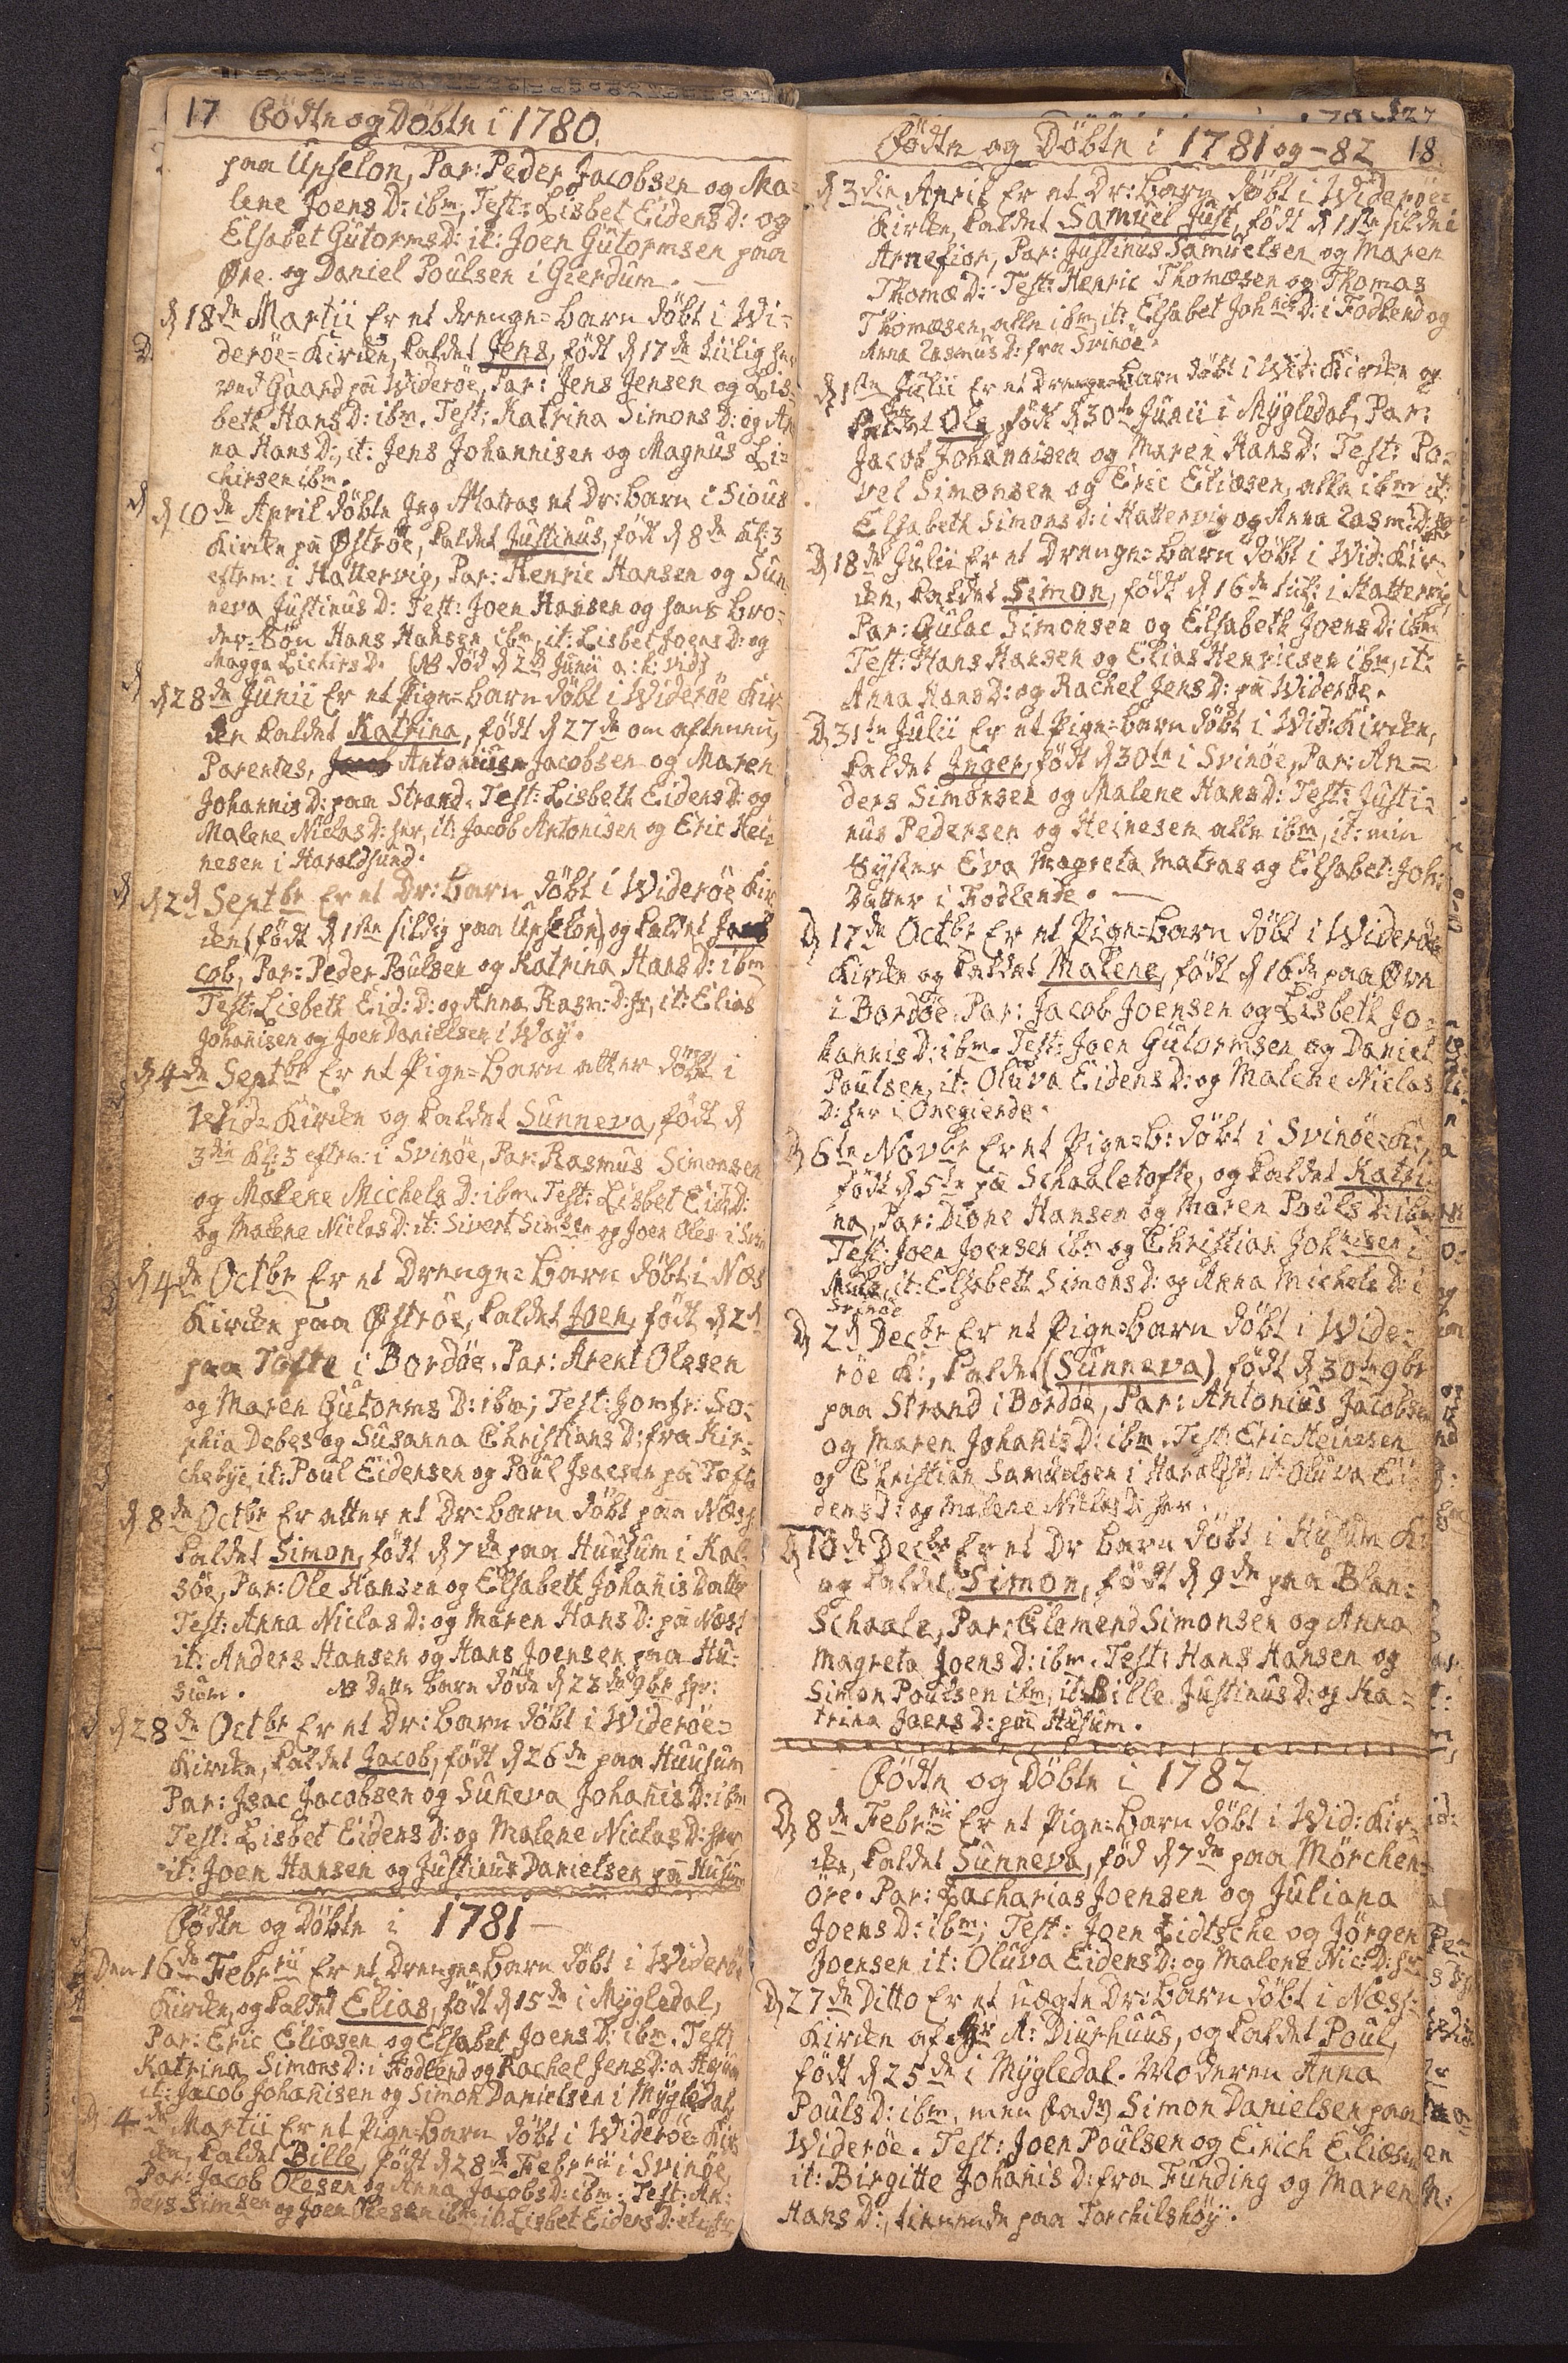 17 Födte og Döbte i 1780.
paa Unselon, Par: Peder Jacobsen og Ma=
lene Joens D: ibm, Test: Lisbet Eidens D: og
Elsabet Gutorms D: it: Joen Gutormsen paa
Øre. og Daniel Poulsen i Gierdum. —
D 18de Martii Er et drenge=barn döbt i Wi=
deröe=Kirke, kaldet Jens, födt D 17de
ved Gaard på Wideröe, Par: Jens Jensen og Lis=
beth Hans D: ibm. Test: Katrina Simons D: og An
na Hans D:, it: Jens Johannisen og Magnus Li=
chirsen ibm.
D 10de April döbte Jeg Matras et Dr: barn i
Kirke på Øströe, kaldet Justinus, födt D 8de Kl: 3
efterm: i Hattervig, Par: Henric Hansen og Sun
neva Justinus D: Test: Joen Hansen og hans bro=
der=Sön Hans Hansen ibm, it: Lisbet Joens D: og
Magga Lichirs D. (NB död D 2de Junii a: h: vid)
D 28de Junii Er et Pige=barn döbt i Wideröe Kir
ke kaldet Katrina, födt D 27de om aftenen,
Parentes, Antonius Jacobsen og Maren
Johannis D: paa Strand. Test: Lisbeth Eidens D: og
Malene Niclas D: her, it: Jacob Antonisen og Eric Hei=
nesen i Haraldsund.
D 2d Septbr Er et Dr: barn döbt i Wideröe Kir
ke (födt D 1ste sildig paa Unselon) og kaldet Ja
cob, Par: Peder Poulsen og Katrina Hans D: ibm
Test: Lisbeth Eid: D: og Anna Rasm: D: hr, it: Elias
Johanisen og Joen Danielsen i Waag.
D 4de Septbr Er et Pige=barn atter döbt i
Wid: Kirke og kaldet Sunneva, födt D
3die Kl: 3 efterm: i Svinöe, Par: Rasmus Simonsen
og Malene Michels D: ibm. Test: Lisbet Eid: D:
og Malene Niclas D: it: Sivert Simsen og Joen Oles: i Svin
D 4de Octbr Er et Drenge=barn döbt i Næs
Kirke paa Øströe, kaldet Joen, födt D 2d
paa Tofte i Bordöe. Par: Arent Olesen
og Maren Gutorms D: ibm; Test: Jomfr: So=
phia Debes og Susanna Christians D: fra Kir=
chebye, it: Poul Eidensen og Poul Isacsen på Toft
D 8de Octbr Er atter et Dr: barn döbt paa Næss
kaldet Simon, födt D 7de paa Huusum i Kal=
söe, Par: Ole Hansen og Elsabeth Johanis Datter
Test: Anna Niclas D: og Maren Hans D: på Næss
it: Anders Hansen og Hans Joensen paa Hu=
sum. NB Dette barn döde D 23de 9br
D 28de Octbr Er et Dr: barn döbt i Wideröe=
Kirke, kaldet Jacob, födt D 26de paa Huusum
Par: Isac Jacobsen og Suneva Johanis D: ibm
Test: Lisbet Eidens D: og Malene Niclas D: her
it: Joen Hansen og Justinus Danielsen på Husum
Födte og Döbte i 1781 —
Den 16de Febrii Er et Drenge=barn döbt i Wideröe
Kirke, og kaldet Elias, födt D 15de i Mygledal,
Par: Eric Eliasen og Elsabet Joens D: ibm. Test:
Katrina Simons D: i Fodlend og Rachel Jens D: a
it: Jacob Johanisen og Simon Danielsen i Mygledal
D 4de Martii Er et Pige=barn döbt i Wideröe Kir
ke, kaldet Bille, födt D 28de Febrii i Svinöe,
Par: Jacob Olesen og Anna Jacobs D: ibm. Test: An:
ders Simsen og Joen Olesen ibm, it: Lisbet Eidens D:
Födte og Döbte i 1781 og -82 18.
D 3die April Er et Dr: barn döbt i Wideröe=
Kirke, kaldet Samuel Just, födt D 1ste sildi
Arnefior, Par: Justinus Samuelsen og Maren
Thomæ D: Test: Henric Thomæsen og Thomas
Thomæsen, alle ibm, it: Elsabet Johnis D: i Fodlend og
Anna Rasmus D: fra Svinöe.
D 1ste Julii Er et Drenge=barn döbt i Wid: Kirke og
kaldet Ole, födt D 30te Junii i Mygledal, Par:
Jacob Johannisen og Maren Hans D: Test: Po=
vel Simonsen og Eric Eliæsen, alle ibm it:
Elsabeth Simons D: i Hattervig og Anna Rasm: D:
D 18de Julii Er et Drenge=barn döbt i Wid: Kir=
ke, kaldet Simon, födt D 16de i Hattervig
Par: Gulac Simonsen og Elsabeth Joens D: ibm
Test: Hans Hansen og Elias Henricsen ibm, it:
Anna Hans D: og Rachel Jens D: på Wideröe.
D 31te Julii Er et Pige=barn döbt i Wid: Kirke,
kaldet Inger, födt D 30te i Svinöe, Par: An=
ders Simonsen og Malene Hans D: Test: Justi=
nus Pedersen og Heinesen alle ibm, it: min
Syster Eva Magreta Matras og Elsabet: Joh:
Datter i Fodlende. —
D 17de Octbr Er et Pige=barn döbt i Wideröe
Kirke og kaldet Malene, födt D 16de paa Øre
i Bordöe. Par: Jacob Joensen og Lisbeth Jo=
hannis D: ibm. Test: Joen Gutormsen og Daniel
Poulsen, it: Oluva Eidens D: og Malene Niclas
D: her i Onegierde.
D 6te Novbr Er et Pige=b: döbt i Svinöe=K:,
födt D 5te på Schaaletofte, og kaldet Katri=
na, Par: Dione Hansen og Maren Pouls D: ibm
Test: Joen Joensen ibm og Christian Johnisen i
Mule, it: Elsabeth Simons D: og Anna Michels D: i
Svinöe
D 2d Decbr Er et Pige=barn döbt i Wide=
röe K:, kaldet (Sunneva), födt D 30te 9br
paa Strand i Bordöe, Par: Antonius Jacobsen
og Maren Johanis D: ibm. Test: Eric Heinesen
og Christian Samuelsen i Haraldss: it: Oluva Ei=
dens D: og Malene Niclas D: her.
D 10de Decbr Er et Dr barn döbt i Husum Ki
og kaldet Simon, födt D 9de paa Blan=
Schaale, Par: Clemend Simonsen og Anna
Magreta Joens D: ibm. Test: Hans Hansen og
Simon Poulsen ibm, it: Bille Justinus D: og Ka=
trina Joens D: på Husum.
Födte og Döbte i 1782
D 8de Febrii Er et Pige=barn döbt i Wid: Kir=
ke, kaldet Sunneva, föd D 7de paa Mörchen=
öre. Par: Zacharias Joensen og Juliana
Joens D: ibm; Test: Joen Lidtsche og Jörgen
Joensen it: Oluva Eidens D: og Malene Nic: D: hr
D 27de Ditto Er et uægte Dr: barn döbt i Næss=
Kirke af Hr A: Diurhuus, og kaldet Poul,
födt D 25de i Mygledal. Moderen Anna
Pouls D: ibm, men Fadr Simon Danielsen paa
Wideröe. Test: Joen Poulsen og Erich Eliæsen
it: Birgitte Johanis D: fra Funding og Maren
Hans D:, tienende paa Torchilshöy.